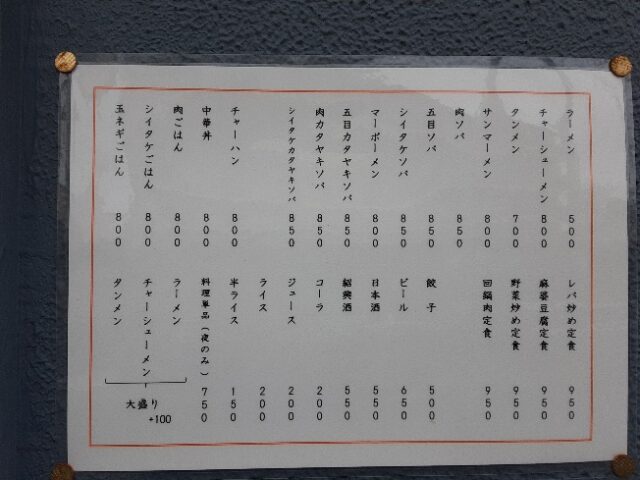 ラーメン 500
チャーシューメン 800
タンメン 700
サンマーメン 800
肉ソバ 850
五目ソバ 850
シイタケソバ 850
マーボーメン 800
五目カタヤキソバ 850
肉カタヤキソバ 850
シイタケカタヤキソバ 850
チャーハン 800
中華丼 800
肉ごはん 800
シイタケごはん 800
玉ネギごはん 800
レバ炒め定食 950
麻婆豆腐定食 950
野菜炒め定食 950
回鍋肉定食 950
餃子 500
ビール 650
日本酒 550
紹興酒 550
コーラ 200
ジュース 200
ライス 200
半ライス 150
料理単品(夜のみ) 750
ラーメン
チャーシューメン
タンメン
大盛り
+100